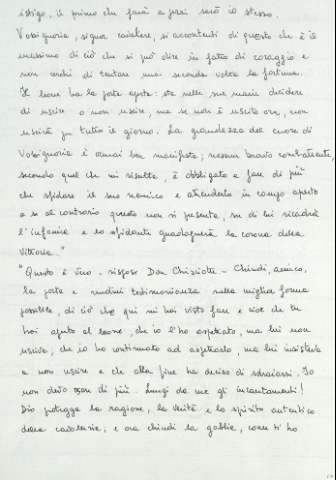 istigo, il primo che farà a pezzi sarò io stesso.
Vossignoria, signor cavaliere, si accontenti di questo che è il
massimo di ciò che si può dire in fatto di coraggio e
non cerchi di tentare una seconda volta la fortuna.
Il leone ha la porta aperta: sta nelle sue mani decidere
di uscire o non uscire, ma se non è uscito ora, non
uscirà per tutto il giorno. La grandezza del cuore di
Vossignoria è ormai ben manifesta; nessun bravo combattente,
secondo quel che mi risulta, è obbligato a fare di più
che sfidare il suo nemico e attenderlo in campo aperto
e se al contrario questo non si presenta, su di lui ricadrà
l'infamia e lo sfidante guadagnerà la corona della
vittoria."
"Questo è vero - rispose Don Chisciotte - Chiudi, amico,
la porta e rendimi testimonianza nella miglior forma
possibile, di ciò che qui mi hai visto fare e cioè che tu
hai aperto al leone, che io l'ho aspettato, ma lui non
usciva; che io ho continuato ad aspettarlo, ma lui insisteva
a non uscire e che alla fine ha deciso di sdraiarsi. Io
non devo osar di più. Lungi da me gli incantamenti!
Dio protegga la ragione, la verità e lo spirito autentico
della cavalleria; e ora chiudi la gabbia, come ti ho